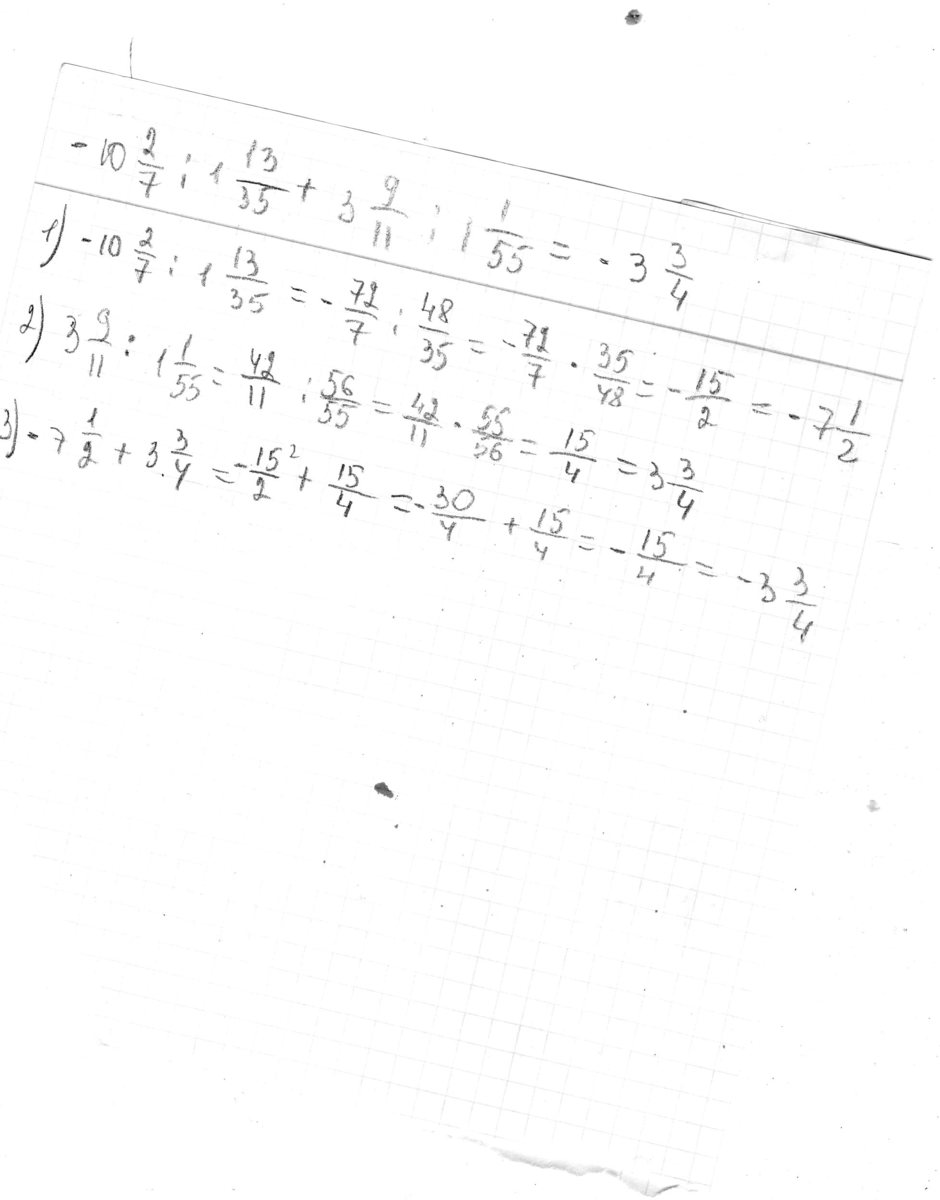 -10 2/7 : 1 13/35 + 3 9/11 : 1 1/55 = -3 3/4
1) -10 2/7 : 1 13/35 = -72/7 : 48/35 = -72/7 · 35/48 = -15/2 = -7 1/2
2) 3 9/11 : 1 1/55 = 42/11 : 56/55 = 42/11 · 55/56 = 15/4 = 3 3/4
3) -7 1/2 + 3 3/4 = -15²/2 + 15/4 = -30/4 + 15/4 = -15/4 = -3 3/4